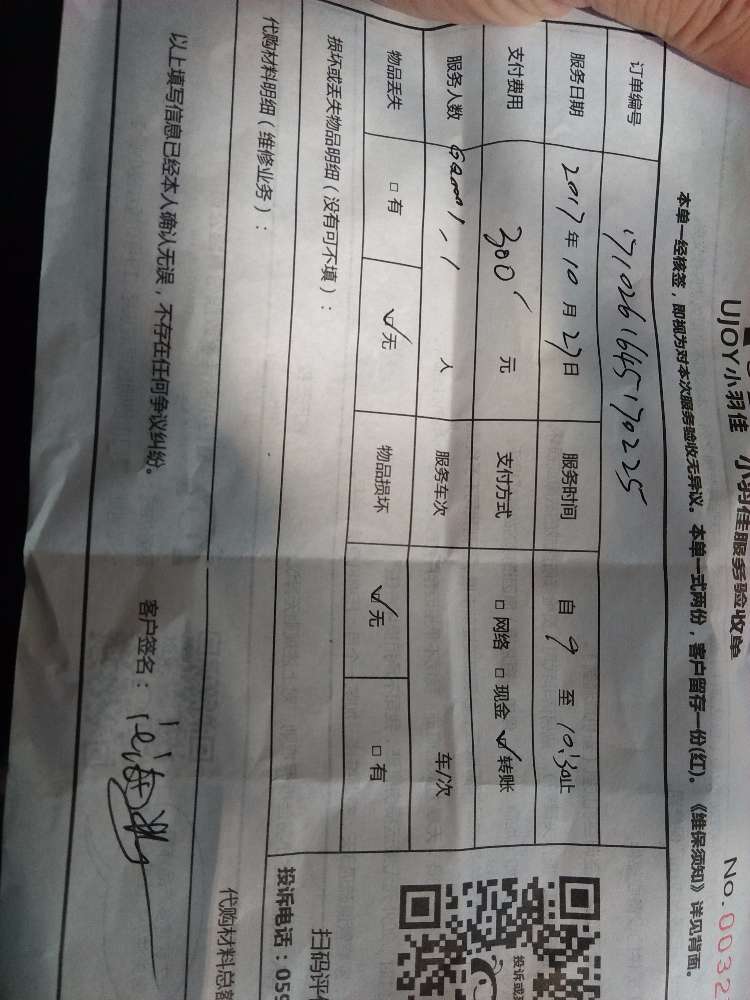 UJOY小羽佳 小羽佳服务验收单 No.0032
本单一经核签，即视为对本次服务验收无异议。本单一式两份，客户留存一份(红)。《维保须知》详见背面。
订单编号 171026164517022５
服务日期 2017年10月27日 服务时间 自9至10:30止
支付费用 300 元 支付方式 □网络 □现金 ☑转账
服务人数 人 服务车次 车/次
物品丢失 □有 ☑无 物品损坏 ☑无 □有
损坏或丢失物品明细（没有可不填）：
代购材料明细（维修业务）：
代购材料总
以上填写信息已经本人确认无误，不存在任何争议纠纷。 客户签名：
投诉或
扫码评
投诉电话：059